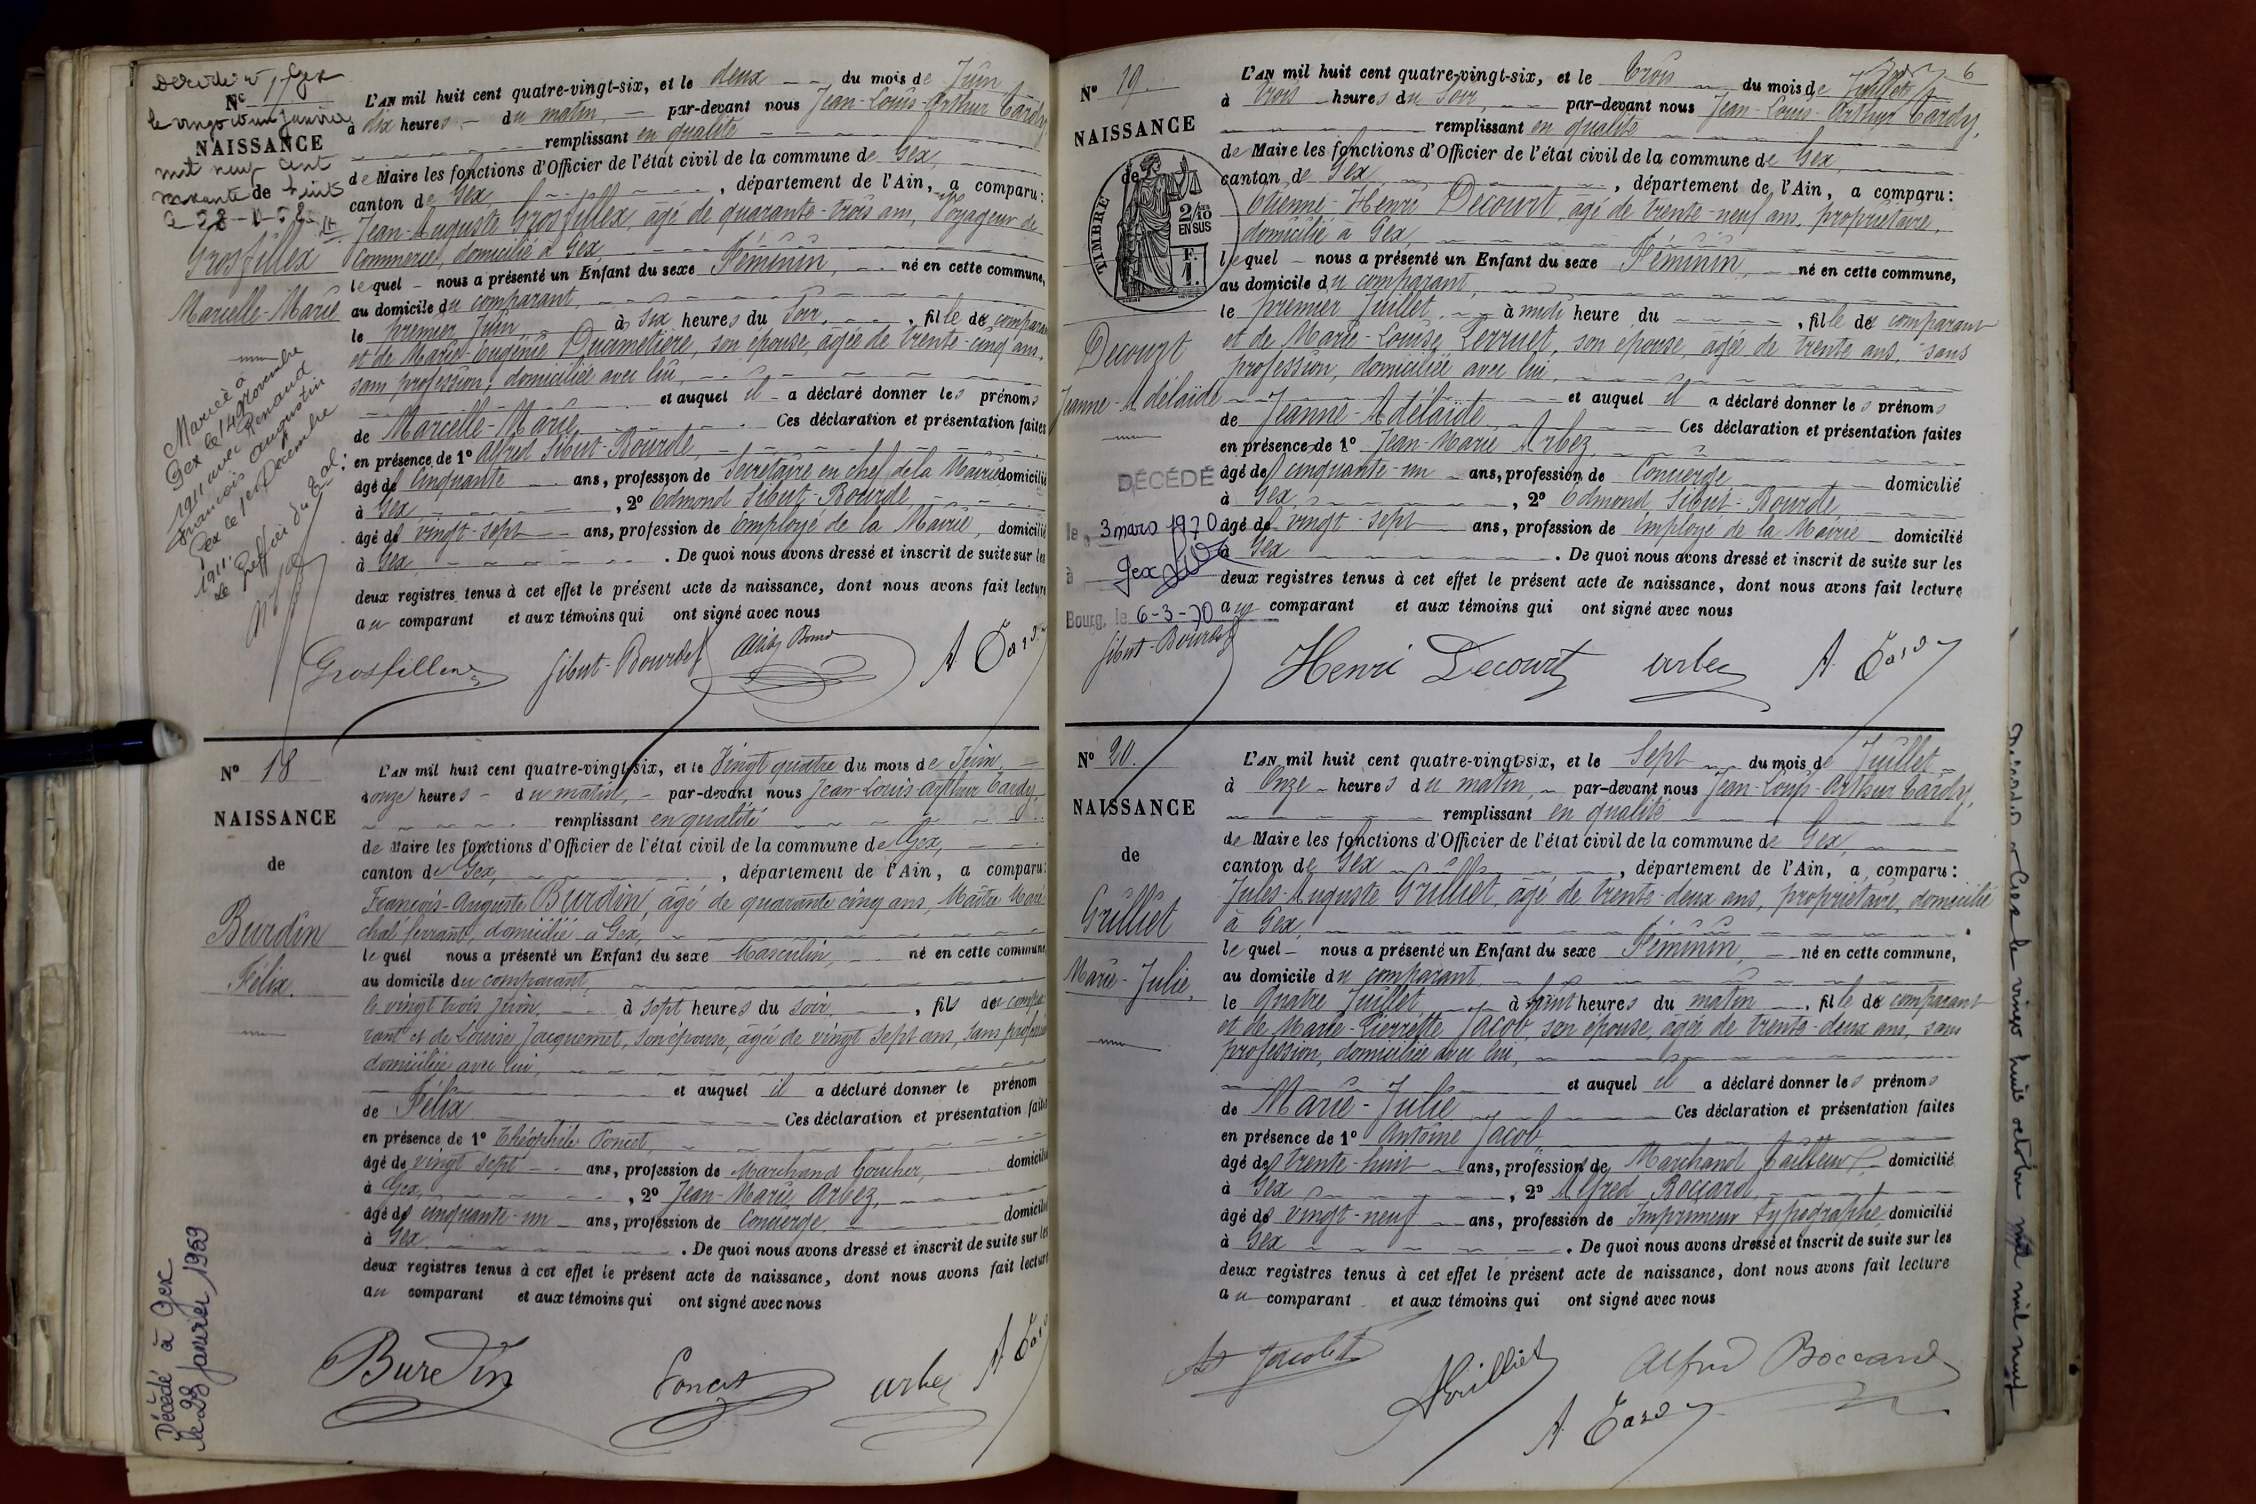 Nº 17
NAISSANCE
de
Grosfillex
Marcelle-Marie
Marié à
Gex le 14 novembre
1911 avec Renaud
François Augustin
Gex le 1er Décembre
1911
Le Greffier du Gal:
L'AN mil huit cent quatre-vingt-six, et le deux du mois de Juin
à dix heures du matin, par-devant nous Jean-Louis-Arthur Tardy,
remplissant en qualité
de Maire les fonctions d'Officier de l'état civil de la commune de Gex,
canton de Gex, département de l'Ain, a comparu:
Jean-Auguste Grosfillex, âgé de quarante-trois ans, Voyageur de
Commerce, domicilié à Gex,
lequel nous a présenté un Enfant du sexe Féminin, né en cette commune,
au domicile du comparant,
le premier Juin à six heures du soir, fille de comparant
et de Marie-Eugénie Ducimetière, son épouse, âgée de trente-cinq ans,
sans profession, domiciliée avec lui,
et auquel il a déclaré donner les prénoms
de Marcelle-Marie Ces déclaration et présentation faites
en présence de 1º Alfred Sibut-Bourde,
âgé de Cinquante ans, profession de Secrétaire en chef de la Mairie domicilié
à Gex, 2º Edmond Sibut-Bourde,
âgé de vingt-sept ans, profession de Employé de la Mairie, domicilié
à Gex. De quoi nous avons dressé et inscrit de suite sur les
deux registres tenus à cet effet le présent acte de naissance, dont nous avons fait lecture
au comparant et aux témoins qui ont signé avec nous
Grosfillex Sibut-Bourde A. Tardy
Nº 18
NAISSANCE
de
Burdin
Félix.
Décédé à Gex
le 28 janvier 1959
L'AN mil huit cent quatre-vingt-six, et le Vingt quatre du mois de Juin,
à onze heures du matin, par-devant nous Jean-Louis-Arthur Tardy,
remplissant en qualité
de Maire les fonctions d'Officier de l'état civil de la commune de Gex,
canton de Gex, département de l'Ain, a comparu:
François-Auguste Burdin, âgé de quarante cinq ans, Maître Maré
chal ferrant, domicilié à Gex,
lequel nous a présenté un Enfant du sexe Masculin, né en cette commune
au domicile du comparant,
le vingt trois juin à sept heures du soir, fils du compa
rant et de Louise Jacquemet, son épouse, âgée de vingt sept ans, sans profession
domiciliée avec lui,
et auquel il a déclaré donner le prénom
de Félix Ces déclaration et présentation faites
en présence de 1º Théophile Poncet,
âgé de vingt sept ans, profession de Marchand boucher, domicilié
à Gex, 2º Jean-Marie Arbez,
âgé de cinquante-un ans, profession de Concierge domicilié
à Gex. De quoi nous avons dressé et inscrit de suite sur les
deux registres tenus à cet effet le présent acte de naissance, dont nous avons fait lecture
au comparant et aux témoins qui ont signé avec nous
Burdin Poncet Arbez A. Tardy
6
Nº 19.
NAISSANCE
de
TIMBRE
2/10
EN SUS
F.
1.
Decourt
Jeanne-Adélaïde
DÉCÉDÉ
le 3 mars 1970
à Gex
Bourg, le 6-3-70
L'AN mil huit cent quatre-vingt-six, et le trois du mois de Juillet
à trois heures du soir, par-devant nous Jean-Louis-Arthur Tardy,
remplissant en qualité
de Maire les fonctions d'Officier de l'état civil de la commune de Gex,
canton de Gex, département de l'Ain, a comparu:
Etienne-Henri Decourt, âgé de trente-neuf ans, propriétaire,
domicilié à Gex,
lequel nous a présenté un Enfant du sexe Féminin, né en cette commune,
au domicile du comparant,
le premier Juillet à midi heure du, fille de comparant
et de Marie-Louise Perruet, son épouse, âgée de trente ans, sans
profession, domiciliée avec lui,
et auquel il a déclaré donner les prénoms
de Jeanne-Adélaïde, Ces déclaration et présentation faites
en présence de 1º Jean-Marie Arbez
âgé de cinquante-un ans, profession de Concierge domicilié
à Gex, 2º Edmond Sibut-Bourde,
âgé de vingt-sept ans, profession de Employé de la Mairie domicilié
à Gex. De quoi nous avons dressé et inscrit de suite sur les
deux registres tenus à cet effet le présent acte de naissance, dont nous avons fait lecture
au comparant et aux témoins qui ont signé avec nous
Sibut-Bourde Henri Decourt Arbez A. Tardy
Nº 20.
NAISSANCE
de
Grilliet
Marie-Julie,
L'AN mil huit cent quatre-vingt-six, et le Sept du mois de Juillet
à Onze heures du matin, par-devant nous Jean-Louis-Arthur Tardy,
remplissant en qualité
de Maire les fonctions d'Officier de l'état civil de la commune de Gex,
canton de Gex, département de l'Ain, a comparu:
Jules-Auguste Grilliet, âgé de trente-deux ans, propriétaire, domicilié
à Gex,
lequel nous a présenté un Enfant du sexe Féminin, né en cette commune,
au domicile du comparant,
le Quatre Juillet à huit heures du matin, fille de comparant
et de Marie-Pierrette Jacob, son épouse, âgée de trente-deux ans, sans
profession, domiciliée avec lui,
et auquel il a déclaré donner les prénoms
de Marie-Julie Ces déclaration et présentation faites
en présence de 1º Antoine Jacob
âgé de trente-huit ans, profession de Marchand Tailleur, domicilié
à Gex, 2º Alfred Boccard,
âgé de vingt-neuf ans, profession de Imprimeur typographe, domicilié
à Gex. De quoi nous avons dressé et inscrit de suite sur les
deux registres tenus à cet effet le présent acte de naissance, dont nous avons fait lecture
au comparant et aux témoins qui ont signé avec nous
Jacob Grilliet Alfred Boccard
A. Tardy